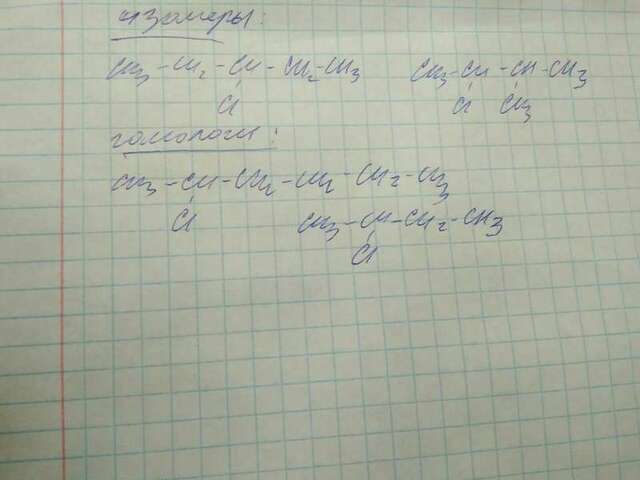 изомеры:
CH3 - CH2 - CH - CH2 - CH3 CH3 - CH - CH - CH3
Cl Cl CH3
гомологи:
CH3 - CH - CH2 - CH2 - CH2 - CH3
Cl CH3 - CH - CH2 - CH3
Cl